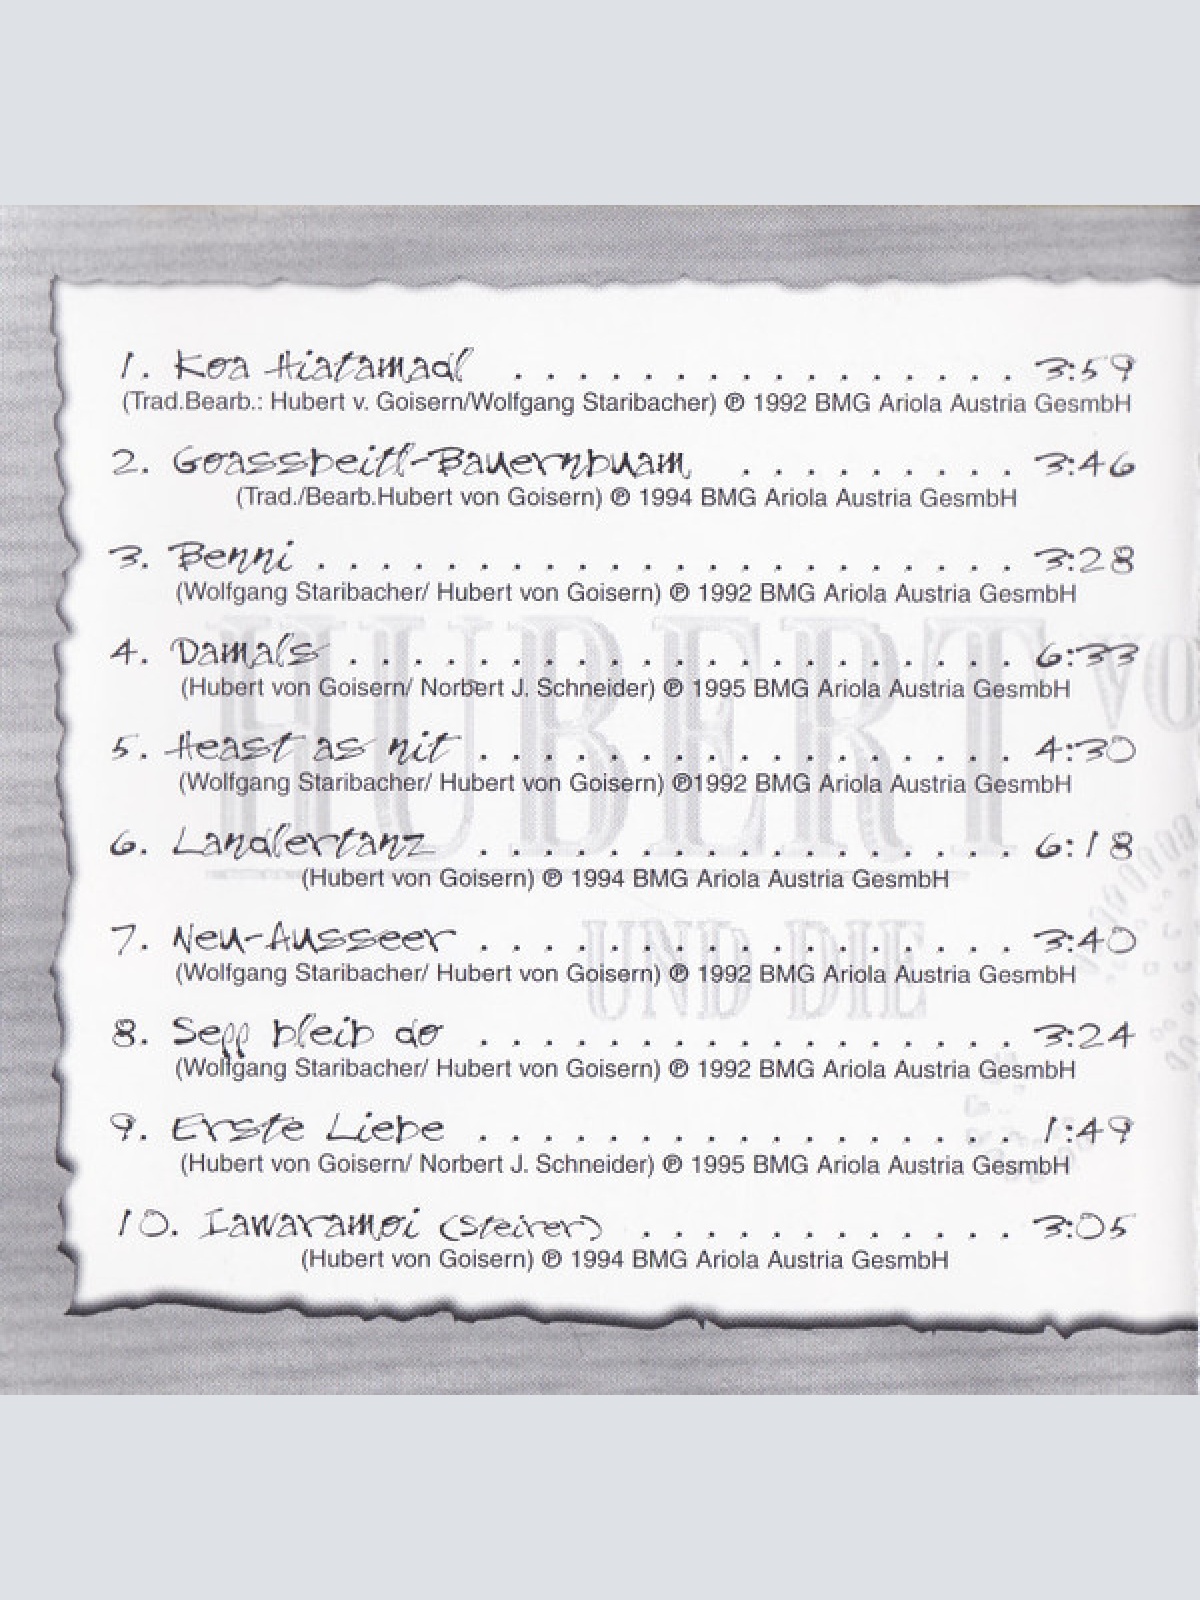 1. Koa Hiatamadl . . . . . . . . . . . . . . . . . . . 3:59
(Trad.Bearb.: Hubert v. Goisern/Wolfgang Staribacher) ℗ 1992 BMG Ariola Austria GesmbH
2. Goassbeitl-Bauernbuam . . . . . . . . . . 3:46
(Trad./Bearb.Hubert von Goisern) ℗ 1994 BMG Ariola Austria GesmbH
3. Benni . . . . . . . . . . . . . . . . . . . . . . . . . . 3:28
(Wolfgang Staribacher/ Hubert von Goisern) ℗ 1992 BMG Ariola Austria GesmbH
HUBERT VO
4. Damals . . . . . . . . . . . . . . . . . . . . . . . . . 6:33
(Hubert von Goisern/ Norbert J. Schneider) ℗ 1995 BMG Ariola Austria GesmbH
5. Heast as nit . . . . . . . . . . . . . . . . . . . . 4:30
(Wolfgang Staribacher/ Hubert von Goisern) ℗1992 BMG Ariola Austria GesmbH
6. Landlertanz . . . . . . . . . . . . . . . . . . . . 6:18
(Hubert von Goisern) ℗ 1994 BMG Ariola Austria GesmbH
7. Neu-Ausseer . . . . . . . . . . . . . . . . . . . . 3:40
UND DIE
(Wolfgang Staribacher/ Hubert von Goisern) ℗ 1992 BMG Ariola Austria GesmbH
8. Sepp bleib do . . . . . . . . . . . . . . . . . . . . 3:24
(Wolfgang Staribacher/ Hubert von Goisern) ℗ 1992 BMG Ariola Austria GesmbH
9. Erste Liebe . . . . . . . . . . . . . . . . . . . . 1:49
(Hubert von Goisern/ Norbert J. Schneider) ℗ 1995 BMG Ariola Austria GesmbH
10. Iawaramoi (Steirer) . . . . . . . . . . . . . . 3:05
(Hubert von Goisern) ℗ 1994 BMG Ariola Austria GesmbH